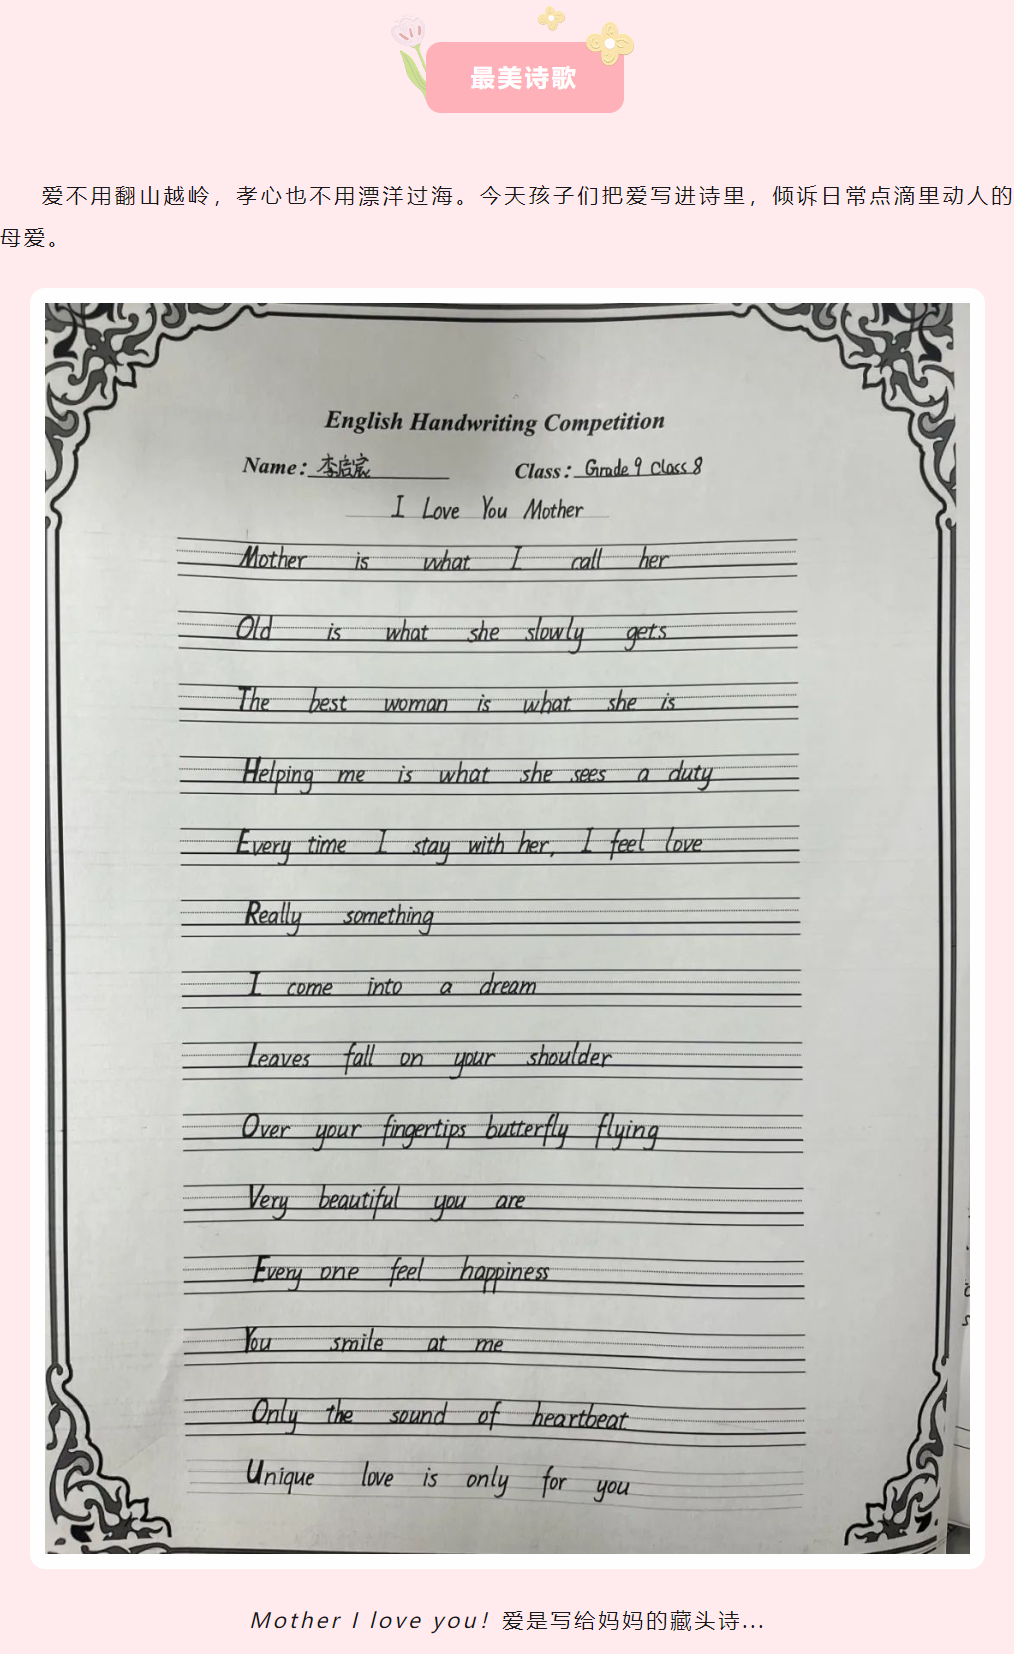 最美诗歌
爱不用翻山越岭，孝心也不用漂洋过海。今天孩子们把爱写进诗里，倾诉日常点滴里动人的
母爱。
English Handwriting Competition
Name: 李启宸 Class: Grade 9 Class 8
I Love You Mother
Mother is what I call her
Old is what she slowly gets
The best woman is what she is
Helping me is what she sees a duty
Every time I stay with her, I feel love
Really something
I come into a dream
Leaves fall on your shoulder
Over your fingertips butterfly flying
Very beautiful you are
Every one feel happiness
You smile at me
Only the sound of heartbeat
Unique love is only for you
Mother I love you! 爱是写给妈妈的藏头诗...